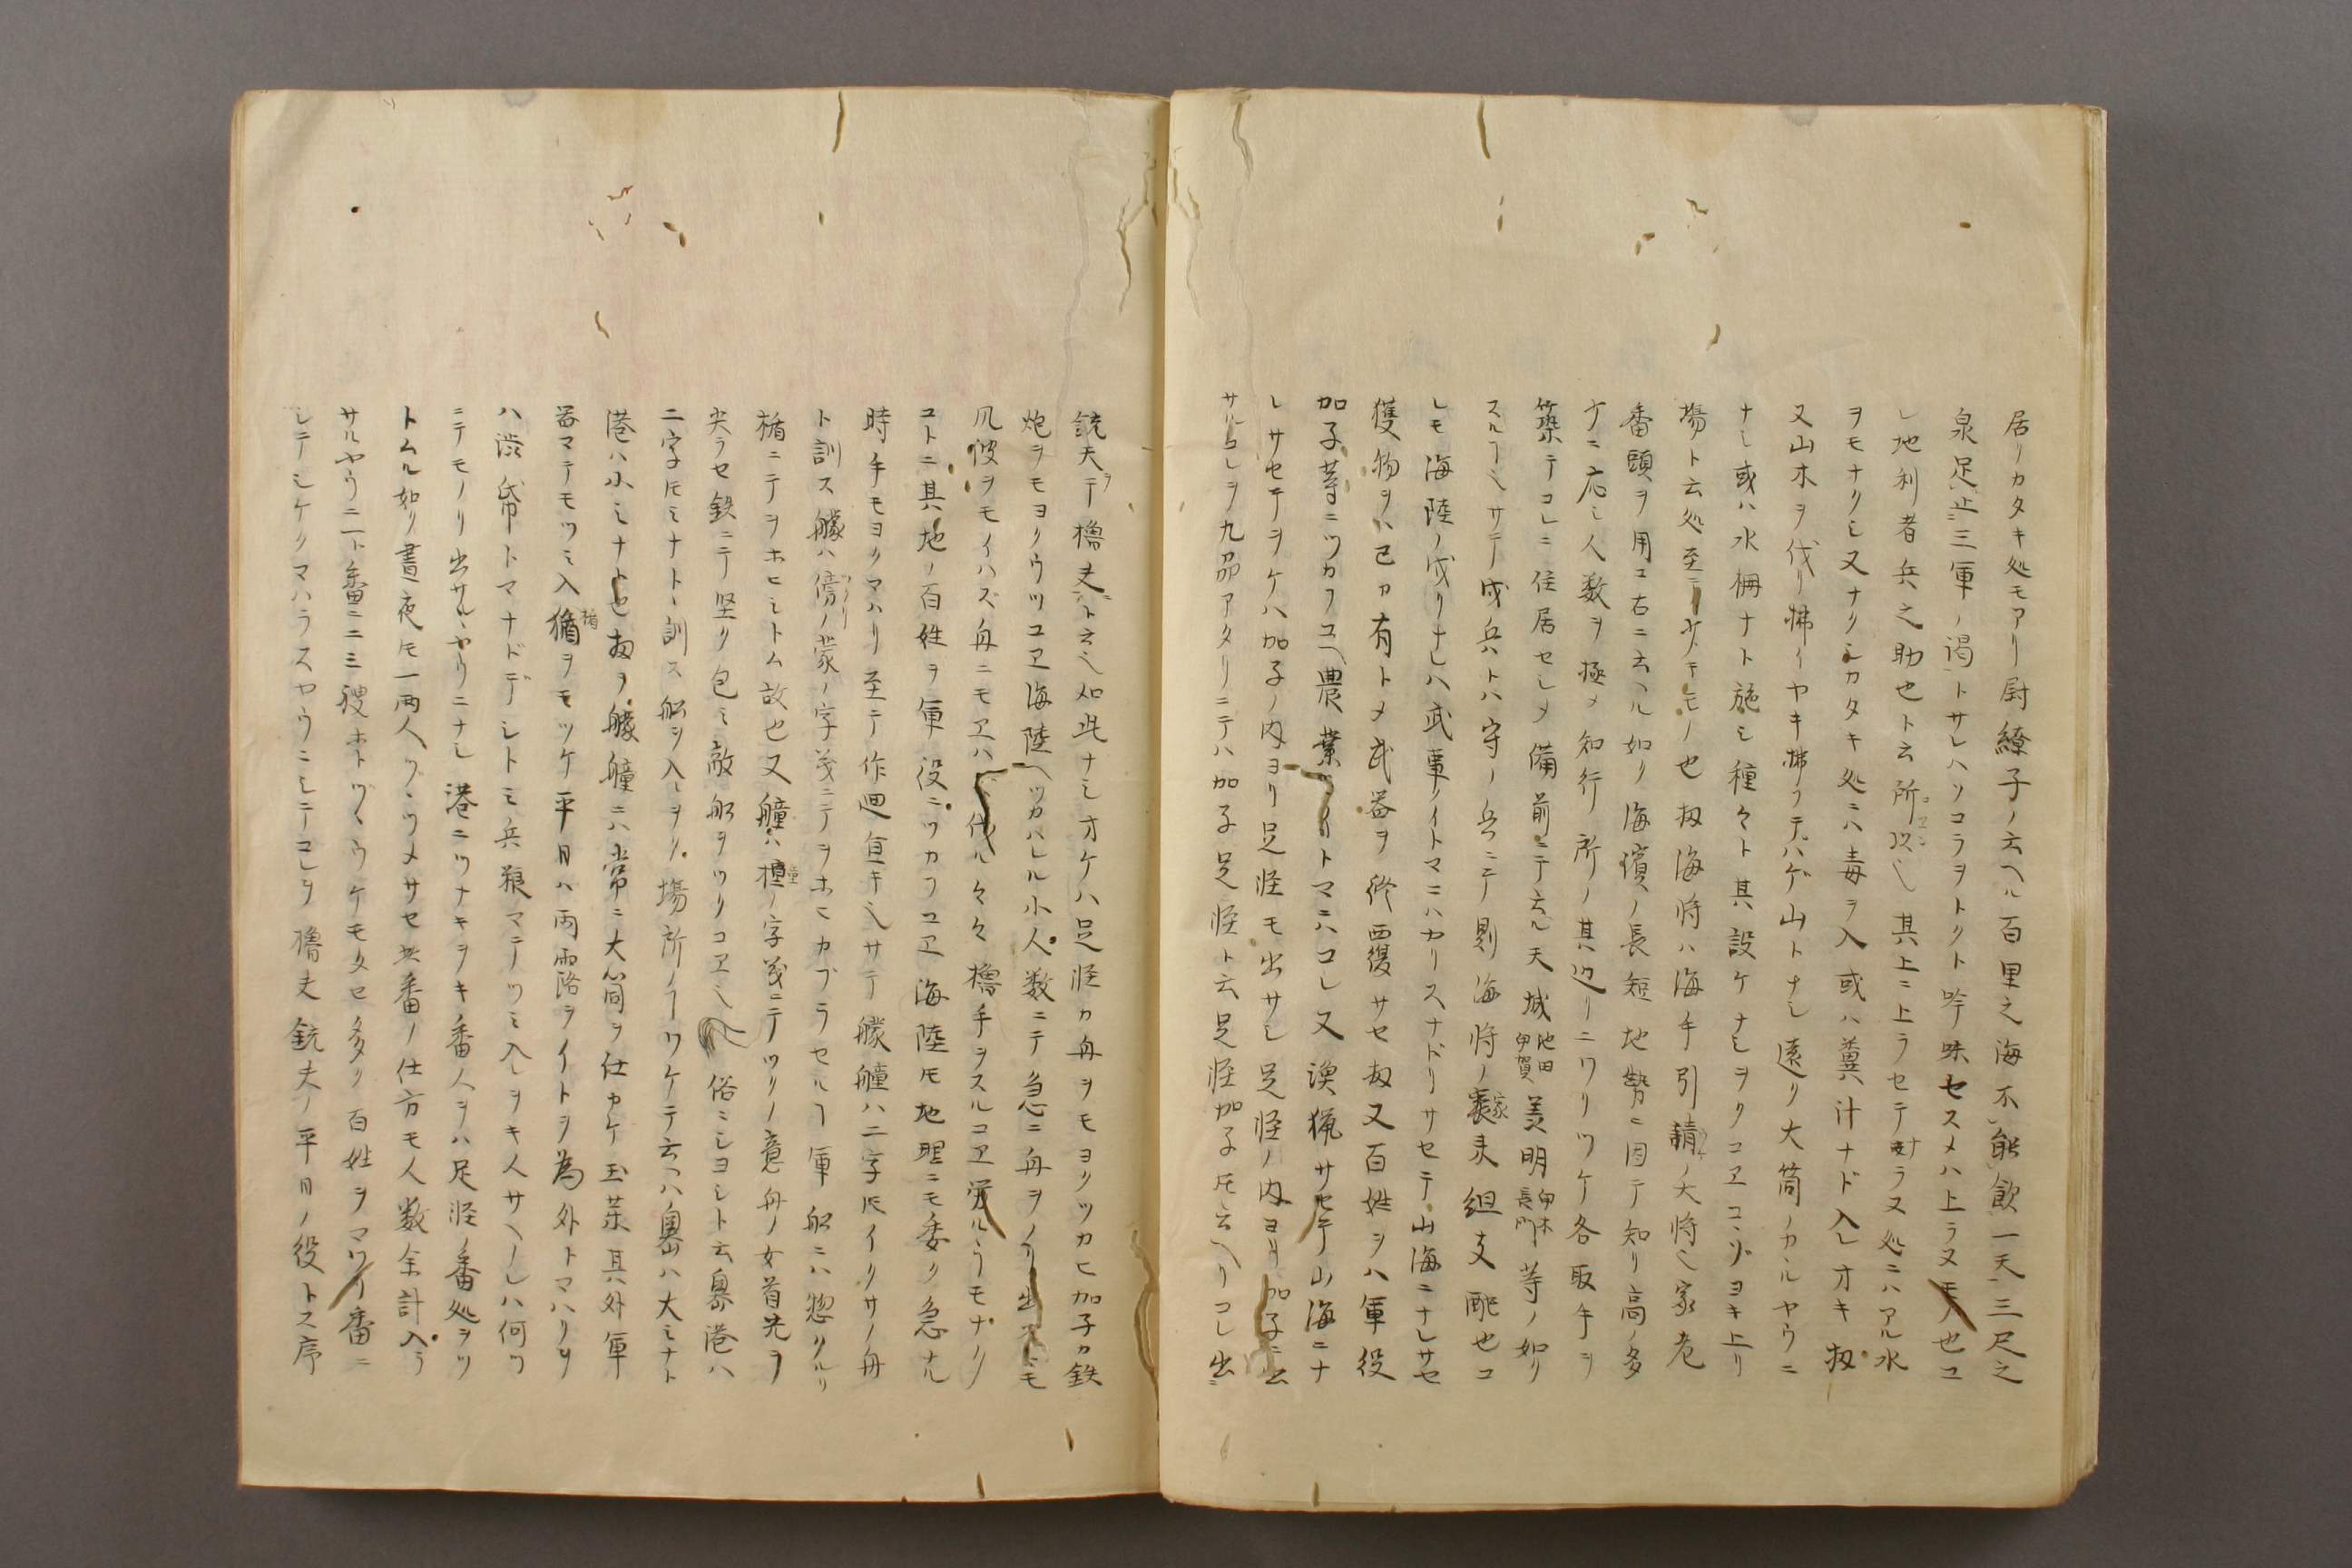 居リカタキ処モアリ尉繚子ノ云ヘル百里之海不能飲一夫三尺之
泉足止三軍ノ渇トサレハソコラヲトクト吟味セスメハ上ラヌモノ也コ
レ地利者兵之助也ト云所以也其上ニ上ラセテ討ラヌ処ニハアル水
ヲモナクシ又ナクシカタキ処ニハ毒ヲ入或ハ糞汁ナド入レオキ扨
又山木ヲ伐リ拂イヤキ拂フテハゲ山トナシ遠ク大筒ノカルヤウニ
ナシ或ハ水柵ナト施シ種々ト其設ケナシヲクユヱコヽゾヨキ上リ
場ト云処至テ少キモノ也扨海将ハ海手引請ノ大将也家老
番頭ヲ用ユ右ニ云ヘル如ク海濱ノ長短地勢ニ因テ知リ高ノ多
ケニ応シ人数ヲ極メ知行所ノ其辺リニワリツケ各取手ヲ
築テコレニ住居セシメ備前ニテ云ル天城池田伊賀美明伊木長門等ノ如ク
スルヿ也サテ戍兵トハ守ノ兵ニテ則海将ノ家来組支配也コ
レモ海陸ノ戍リナレハ武事ノイトマニハカリスナドリサセテ山海ニナレサセ
獲物ヲハ己カ有トメ武器ヲ修覆サセ扨又百姓ヲハ軍役
加子等ニツカフユヘ農業ノイトマニハコレ又漁猟サセテ山海ニナ
レサセテヲケハ加子ノ内ヨリ足軽モ出サレ足軽ノ内ヨリ加子ニ云
サルコレヲ九品アタリニテハ加子足軽ト云足軽加子氏云ヘリコレ出
銃夫テ櫓夫ト云也如此ナシオケハ足軽カ舟ヲモヨクツカヒ加子カ鉄
炮ヲモヨクウツユヱ海陸ヘツカハレル小人数ニテ急ニ舟ヲノリ出スニモ
凡彼ヲモイハズ舟ニモヱハズ代ル々々櫓手ヲスルユヱ労ルヽウモナク
コトニ其地ノ百姓ヲ軍役ニツカフユヱ海陸氏地理ニモ委ク急ナル
時手モヨクマハリ至テ作廻宜キ也サテ艨艟ハ二字氏イクサノ舟
ト訓ス艨ハ傍ノ蒙ノ字義ニテヲホヒカブラセルヿ軍船ニハ惣クルリ
楯ニテヲホヒシトム故也又艟ハ撞ノ字義ニテツクノ意舟ノ女首先ヲ
尖ラセ鉄ニテ堅ク包ミ敵船ヲツクユヱ也俗ニシヨシト云奧港ハ
二字氏ミナトヽ訓ス船ヲ入ルヲク場所ノヿワケテ云ヘハ奧ハ大ミナト
港ハ小ミナト也扨ヲ艨艟ニハ常ニ大筒ヲ仕カケ玉薬其外軍
器マテモツミ入楯ヲモツケ平日ハ雨露ヲイトヲ為外トマハリヲ
ハ渋紙トマナドデシトミ兵粮マテツミ入レヲキ人サヘノレハ何ツ
ニテモノリ出サルヽヤウニナシ港ニツナキヲキ番人ヲハ足軽ノ番処ヲツ
トムル如ク晝夜氏一両人ヅヽツメサセ其番ノ仕方モ人数余計入ラ
サルヤウニ一ト番ニ二三艘ホドヅヽウケモタセ多ク百姓ヲマワリ番ニ
シテシケクマハラスヤウニシテコレヲ櫓夫銃夫ノ平日ノ役トス序